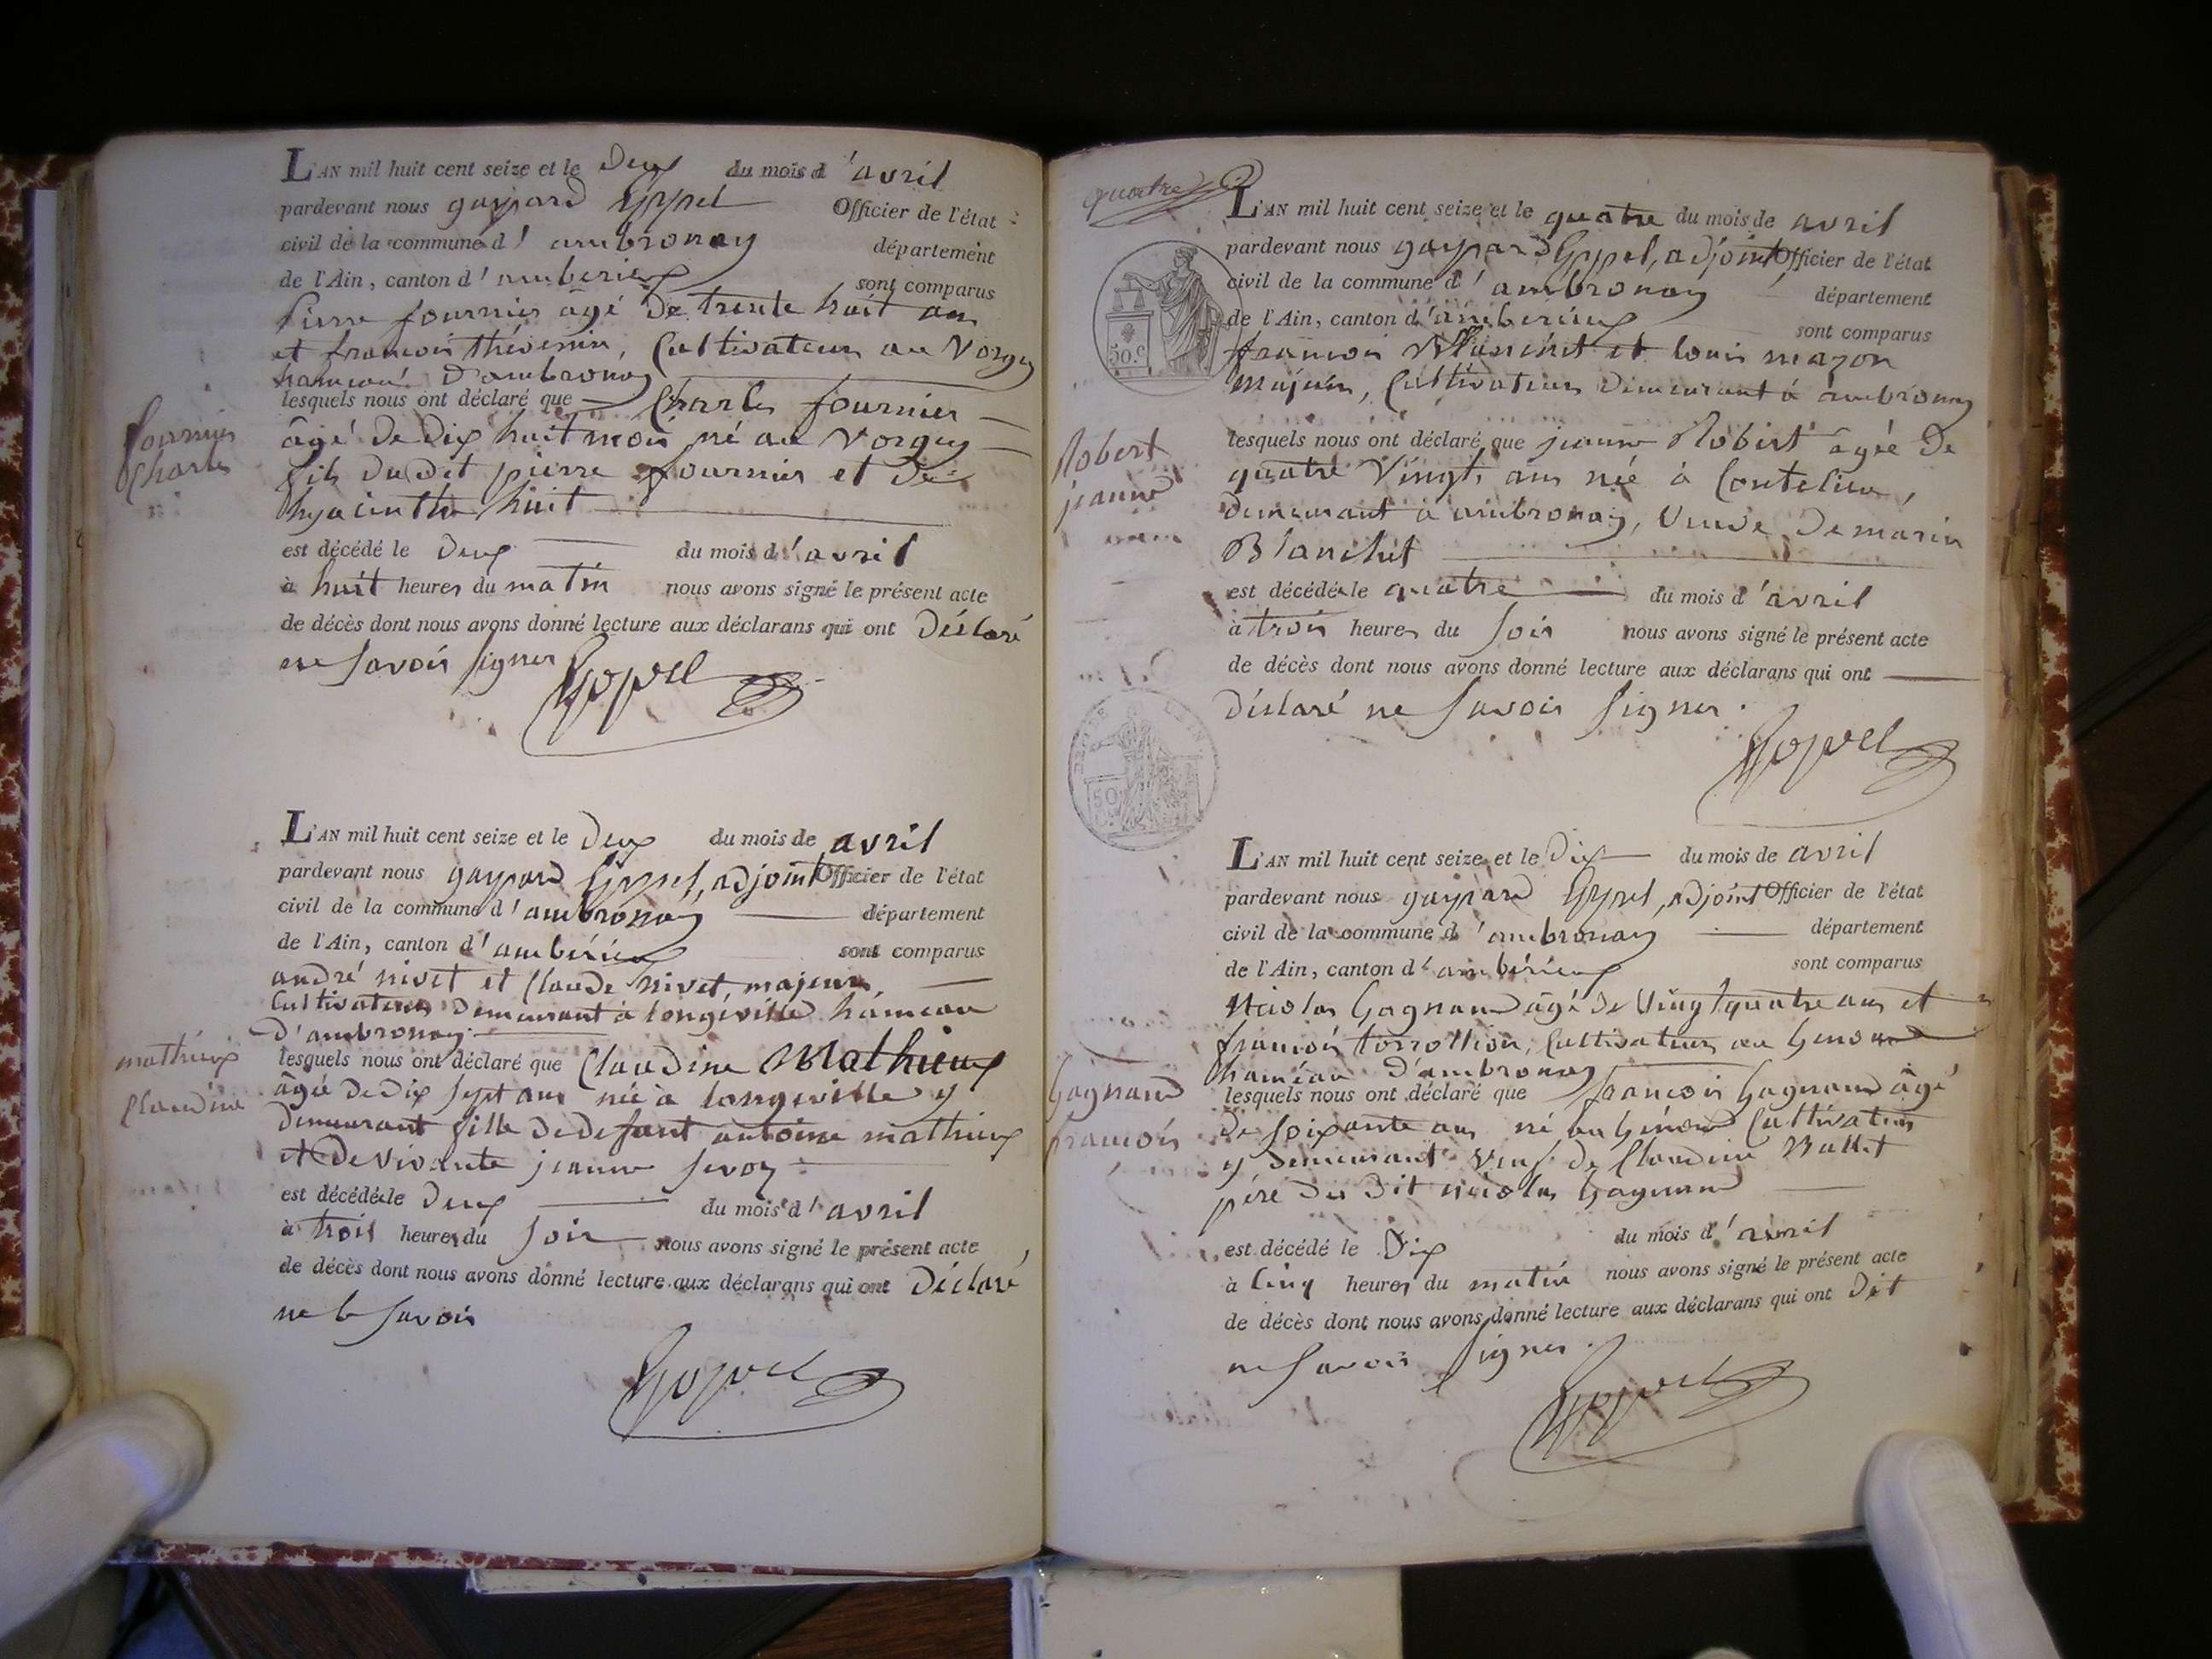 L'AN mil huit cent seize et le Deux du mois d'avril
pardevant nous gaspard Officier de l'état
civil de la commune d'ambronay département
de l'Ain, canton d'amberieux sont comparus
pierre fournier âgé De trente huit ans
et francois thévenin, Cultivateurs au Vorgey
hameau D'ambronay
lesquels nous ont déclaré que Charles fournier
âgé De Dix huit mois né au Vorgey
fils Dudit pierre fournier et De
hyacinthe huit
est décédé le Deux du mois d'avril
à huit heures du matin nous avons signé le présent acte
de décès dont nous avons donné lecture aux déclarans qui ont Déclaré
ne Savoir Signer
fournier
Charles
L'AN mil huit cent seize et le Deux du mois de avril
pardevant nous gaspard adjoint Officier de l'état
civil de la commune d'ambronay département
de l'Ain, canton d'ambérieux sont comparus
andré nivet et Claude nivet, majeurs,
Cultivateurs Demeurant à longeville hameau
D'ambronay
lesquels nous ont déclaré que Claudine Mathieux
âgée De Dix Sept ans née à longeville y
Demeurant fille De defunt antoine mathieux
et De vivante jeanne
est décédée le Deux du mois d'avril
à trois heures du Soir nous avons signé le présent acte
de décès dont nous avons donné lecture aux déclarans qui ont Déclaré
ne le Savoir
mathieux
Claudine
quatre
50 c
L'AN mil huit cent seize et le quatre du mois de avril
pardevant nous gaspard adjoint Officier de l'état
civil de la commune d'ambronay département
de l'Ain, canton d'amberieux sont comparus
francois Blanchet et louis mazon
majeurs, Cultivateurs Demeurant à ambronay
lesquels nous ont déclaré que jeanne Robert âgée De
quatre Vingt ans née à
Demeurant à ambronay, Veuve De marin
Blanchet
est décédée le quatre du mois d'avril
à trois heures du Soir nous avons signé le présent acte
de décès dont nous avons donné lecture aux déclarans qui ont
Déclaré ne Savoir Signer.
Robert
jeanne
L'AN mil huit cent seize et le Dix du mois de avril
pardevant nous gaspard adjoint Officier de l'état
civil de la commune d'ambronay département
de l'Ain, canton d'ambérieux sont comparus
Nicolas Gagnand âgé De Vingt quatre ans et
francois Cultivateurs au
hameau D'ambronay
lesquels nous ont déclaré que francois Gagnand âgé
De Soixante ans né au Cultivateur
y Demeurant Veuf De Claudine
père Du Dit nicolas Gagnand
est décédé le Dix du mois d'avril
à Cinq heures du matin nous avons signé le présent acte
de décès dont nous avons donné lecture aux déclarans qui ont Dit
ne Savoir Signer.
Gagnand
francois